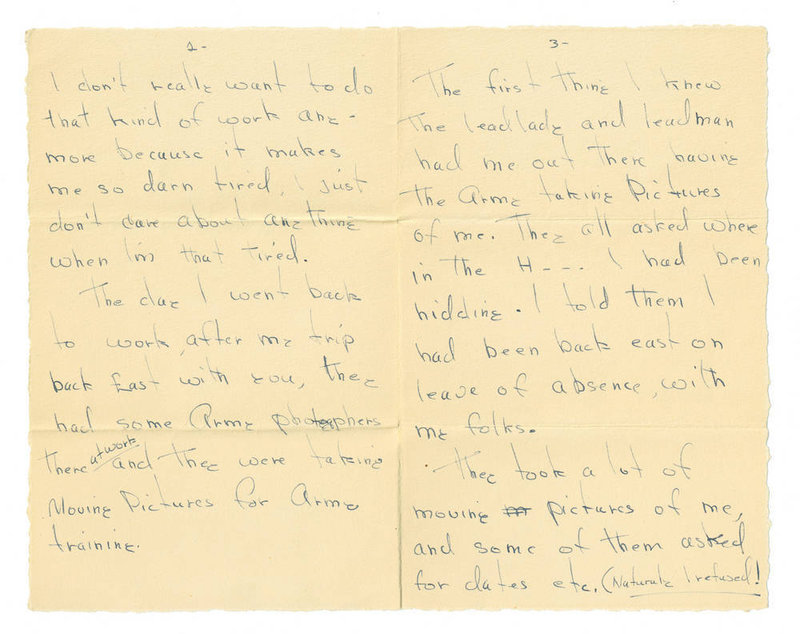 2-
I don't really want to do
that kind of work any-
more because it makes
me so darn tired. I just
don't care about any thing
when I'm that tired.
The day I went back
to work, after my trip
back East with you, they
had some Army photogphers
there at work and they were taking
Moving Pictures for Army
training.
3-
The first thing I knew
the leadlady and leadman
had me out there having
the Army taking Pictures
of me. They all asked where
in the H--- I had been
hidding. I told them I
had been back east on
leave of absence, with
my folks.
They took a lot of
moving pictures of me,
and some of them asked
for dates etc. (Naturaly I refused!